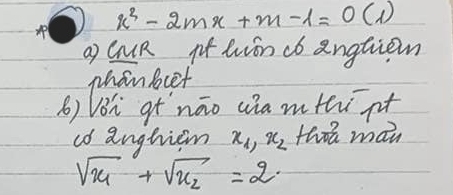 x² - 2mx + m - 1 = 0 (1)
a) CMR pt luôn có 2 nghiệm
phân biệt
b) Với gt nào của m thì pt
có 2 nghiệm x₁, x₂ thoả mãn
√x₁ + √x₂ = 2.